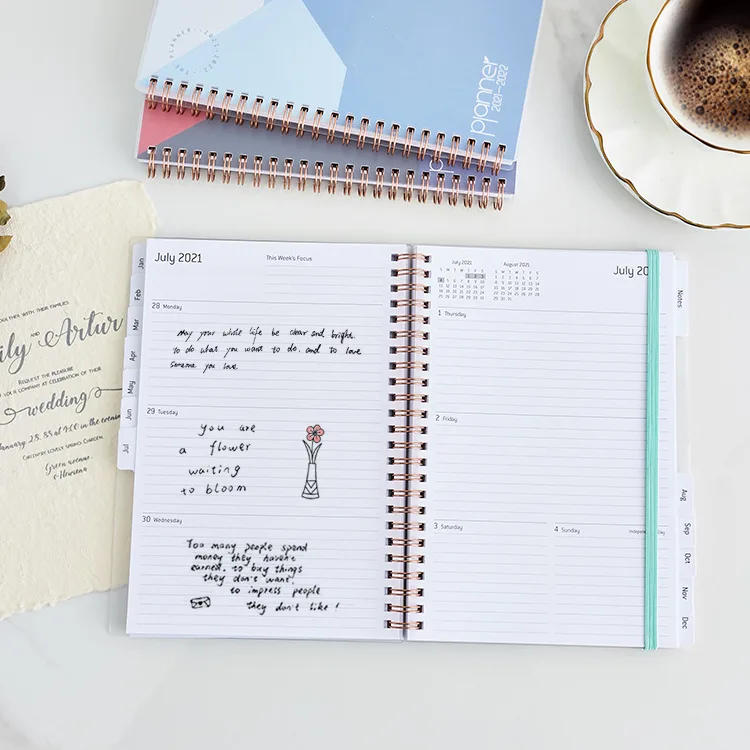 THE PLANNER 2021-2022
planner
2021-2022
July 2021
This Week's Focus
28 Monday
May your whole life be clear and bright.
to do what you want to do. and to love
someone you love
29 Tuesday
you are
a flower
waiting
to bloom
30 Wednesday
Too many people spend
money they haven't
earned. to buy things
they don't want.
to impress people
they don't like!
Jan
Feb
Mar
Apr
May
Jun
Jul
July 2021
August 2021
July 20
1 Thursday
2 Friday
3 Saturday
4 Sunday
Notes
Aug
Sep
Oct
Nov
Dec
TOGETHER WITH THEIR FAMILIES
AND
ily Artur
REQUEST THE PLEASURE
YOUR COMPANY AT CELEBRATION OF THEIR
wedding